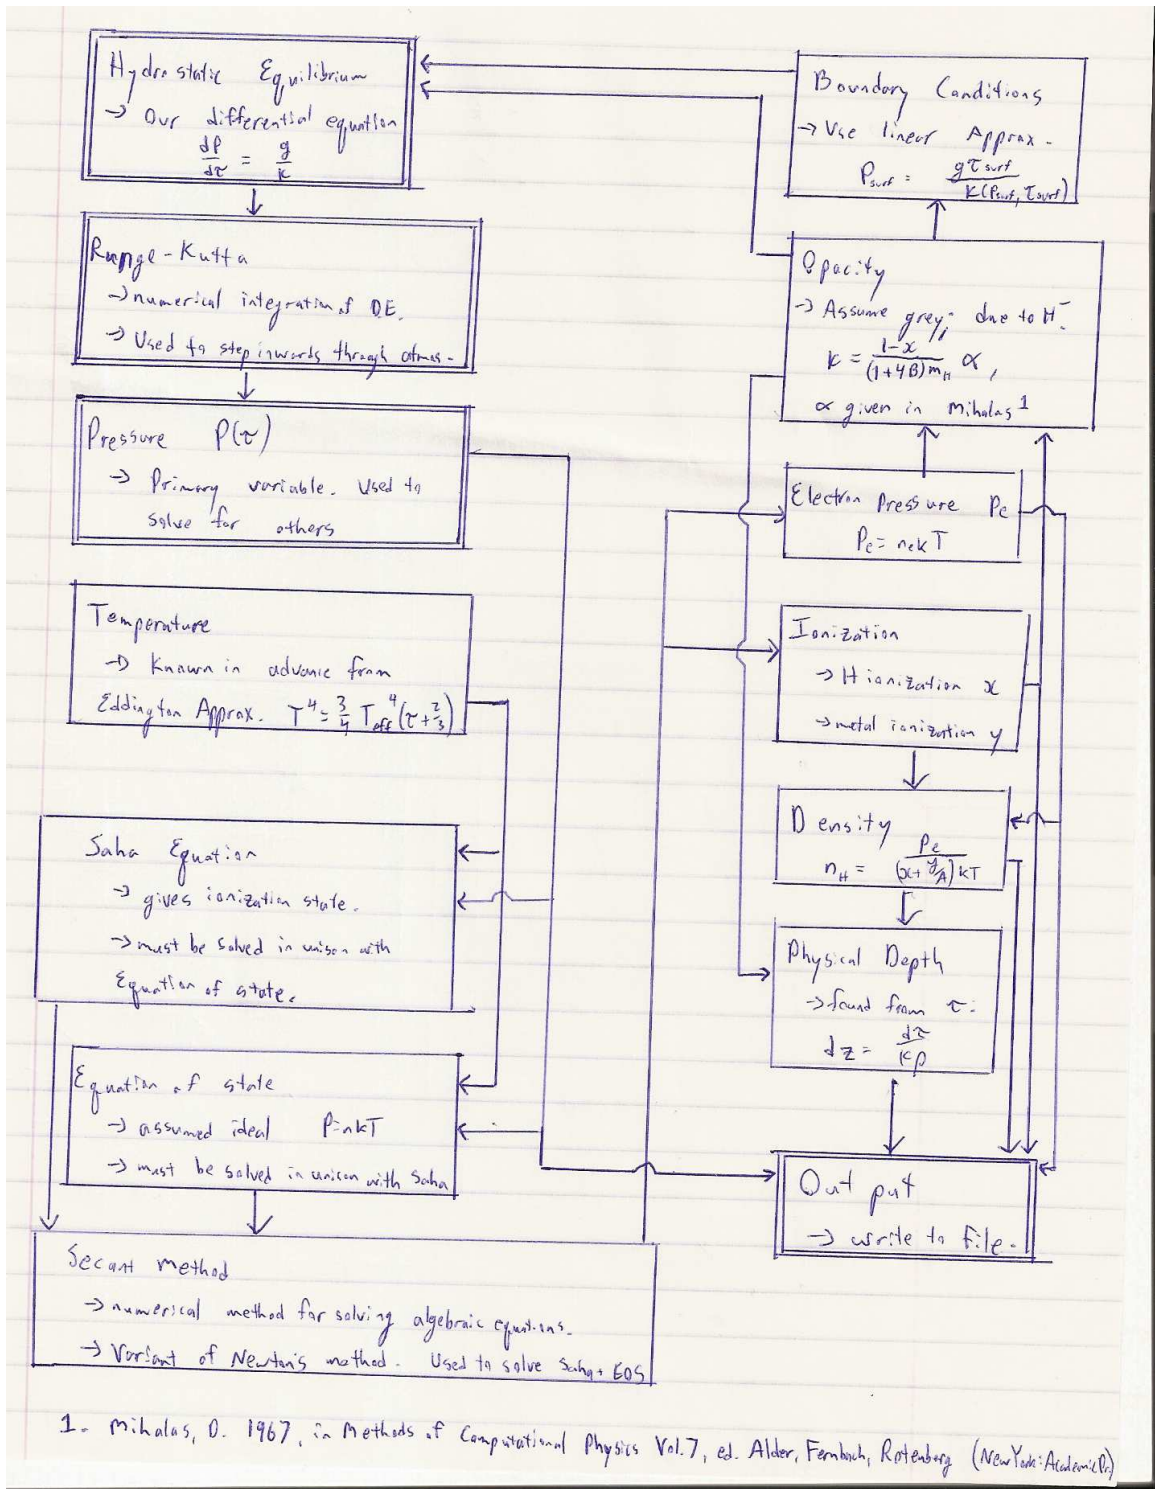 Hydrostatic Equilibrium
→ Our differential equation
dP/dτ = g/κ
Runge-Kutta
→ numerical integration of DE.
→ Used to step inwards through atmos.
Pressure P(τ)
→ Primary variable. Used to
solve for others
Temperature
→ Known in advance from
Eddington Approx. T⁴ = 3/4 T_eff⁴ (τ + 2/3)
Saha Equation
→ gives ionization state.
→ must be solved in unison with
Equation of state.
Equation of state
→ assumed ideal P=nkT
→ must be solved in unison with Saha
Secant method
→ numerical method for solving algebraic equations.
→ Variant of Newton's method. Used to solve Saha + EOS
Boundary Conditions
→ Use linear Approx.
P_surf = gτ_surf / κ(P_surf, τ_surf)
Opacity
→ Assume grey; due to H⁻.
κ = (1-x) / ((1+4B)m_H) α,
α given in Mihalas¹
Electron Pressure Pe
Pe = nekT
Ionization
→ H ionization x
→ metal ionization y
Density
n_H = Pe / ((x + y/A)kT)
Physical Depth
→ found from τ:
dz = dτ/κρ
Out put
→ write to file.
1. Mihalas, D. 1967, in Methods of Computational Physics Vol.7, ed. Alder, Fernbach, Rotenberg (New York: Academic Pr.)